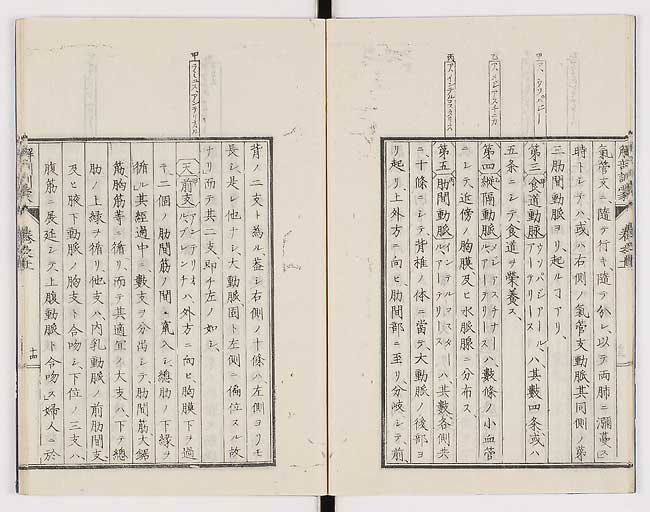 甲ア、ウソパジー
乙ア、メジアスチニカ
丙アインテルコスタリス
氣管支ニ隨テ行キ隨テ分レ以テ兩肺ニ瀰蔓ス
時トシテハ或ハ右側ノ氣管支動脈其同側ノ第
三肋間動脈ヨリ起ル丁アリ
第三食道動脈ハ其數四条或ハ
五条ニシテ食道ヲ榮養ス
第四縱隔動脈メジアスチナールアーテリースハ數條ノ小血管
ニシテ近傍ノ胸膜及ヒ水脈腺ニ分布ス
第五肋間動脈インテルコスタールアーテリースハ其數各側共
ニ十條ニシテ背椎ノ体ニ當テ大動脈ノ後部ヨ
リ起リ上外方ニ向ヒ肋間部ニ至リ分岐シテ前
解剖訓蒙
背ノ二支ト為ル蓋シ右側ノ十條ハ左側ヨリモ
長シ是レ他ナシ大動脈固ト左側ニ偏位スル故
ナリ而テ其二支即チ左ノ如シ
天前支ハ外方ニ向ヒ胸膜下ヲ過
キ二個ノ肋間筋ノ間ニ竄入シ總肋ノ下縁ヲ
循ル其経過中ニ數支ヲ分派シテ肋間筋大鋸
筋胸筋等ニ循リ而テ其適宜ノ大支ハ下テ總
肋ノ上縁ヲ循リ他支ハ内乳動脈ノ前肋間支
及ヒ腋下動脈ノ胸支ト合吻シ下位ノ三支ハ
腹筋ニ展延シテ上腹動脈ト合吻ス婦人ニ於
解剖訓蒙
十四